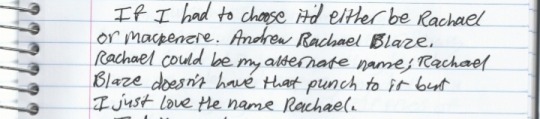 If I had to choose it'd either be Rachael
or Mackenzie. Andrew Rachael Blaze.
Rachael could be my alternate name; Rachael
Blaze doesn't have that punch to it but
I just love the name Rachael.